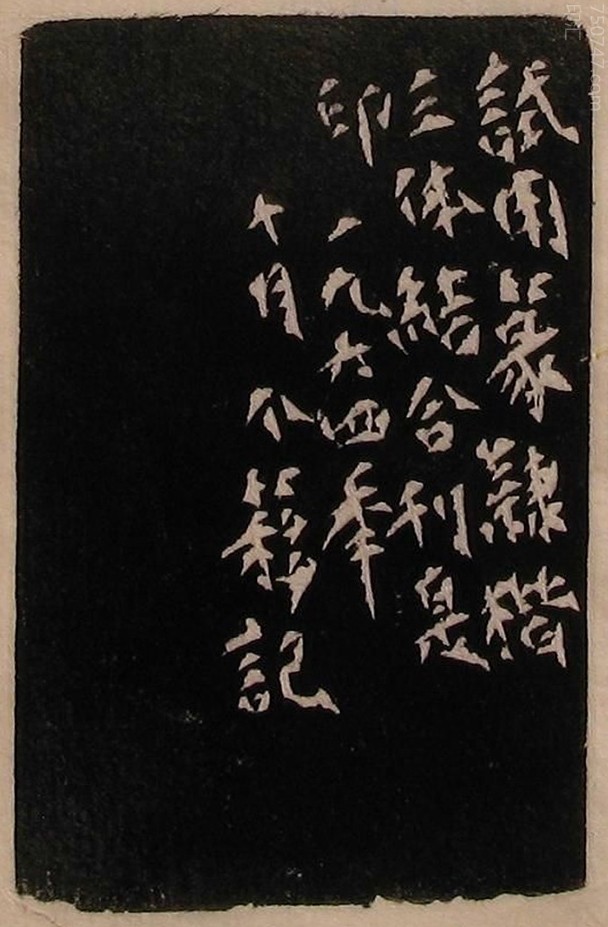 試用篆隸楷
三体結合刊是
印
一九六四年
十月个簃記